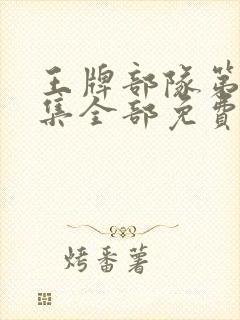 王牌部隊第
集全部免費
烤番薯